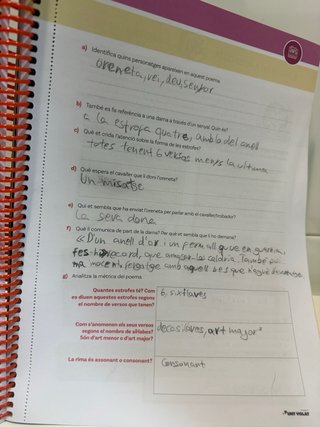 a) Identifica quins personatges apareixen en aquest poema.
oreneta, rei, deu, senyor
b) També es fa referència a una dama a través d'un senyal. Quin és?
a la estrofa quatre, amb lo del anell
c) Què et crida l'atenció sobre la forma de les estrofes?
totes tenent 6 versos menys la ultima
d) Què espera el cavaller que li doni l'oreneta?
Un misatge
e) Qui et sembla que ha enviat l'oreneta per parlar amb el cavaller/trobador?
la seva dona
f) Què li comunica de part de la dama? Per què et sembla que li ho demana?
«D'un anell d'or i un fermall que en
fes
record, que
amb aquell bes que
g) Analitza la mètrica del poema.
Quantes estrofes té? Com
es diuen aquestes estrofes segons
el nombre de versos que tenen?
6, sixtlaves
Com s'anomenen els seus versos
segons el nombre de síl·labes?
Són d'art menor o d'art major?
decasílaves, art major
La rima és assonant o consonant?
Consonant